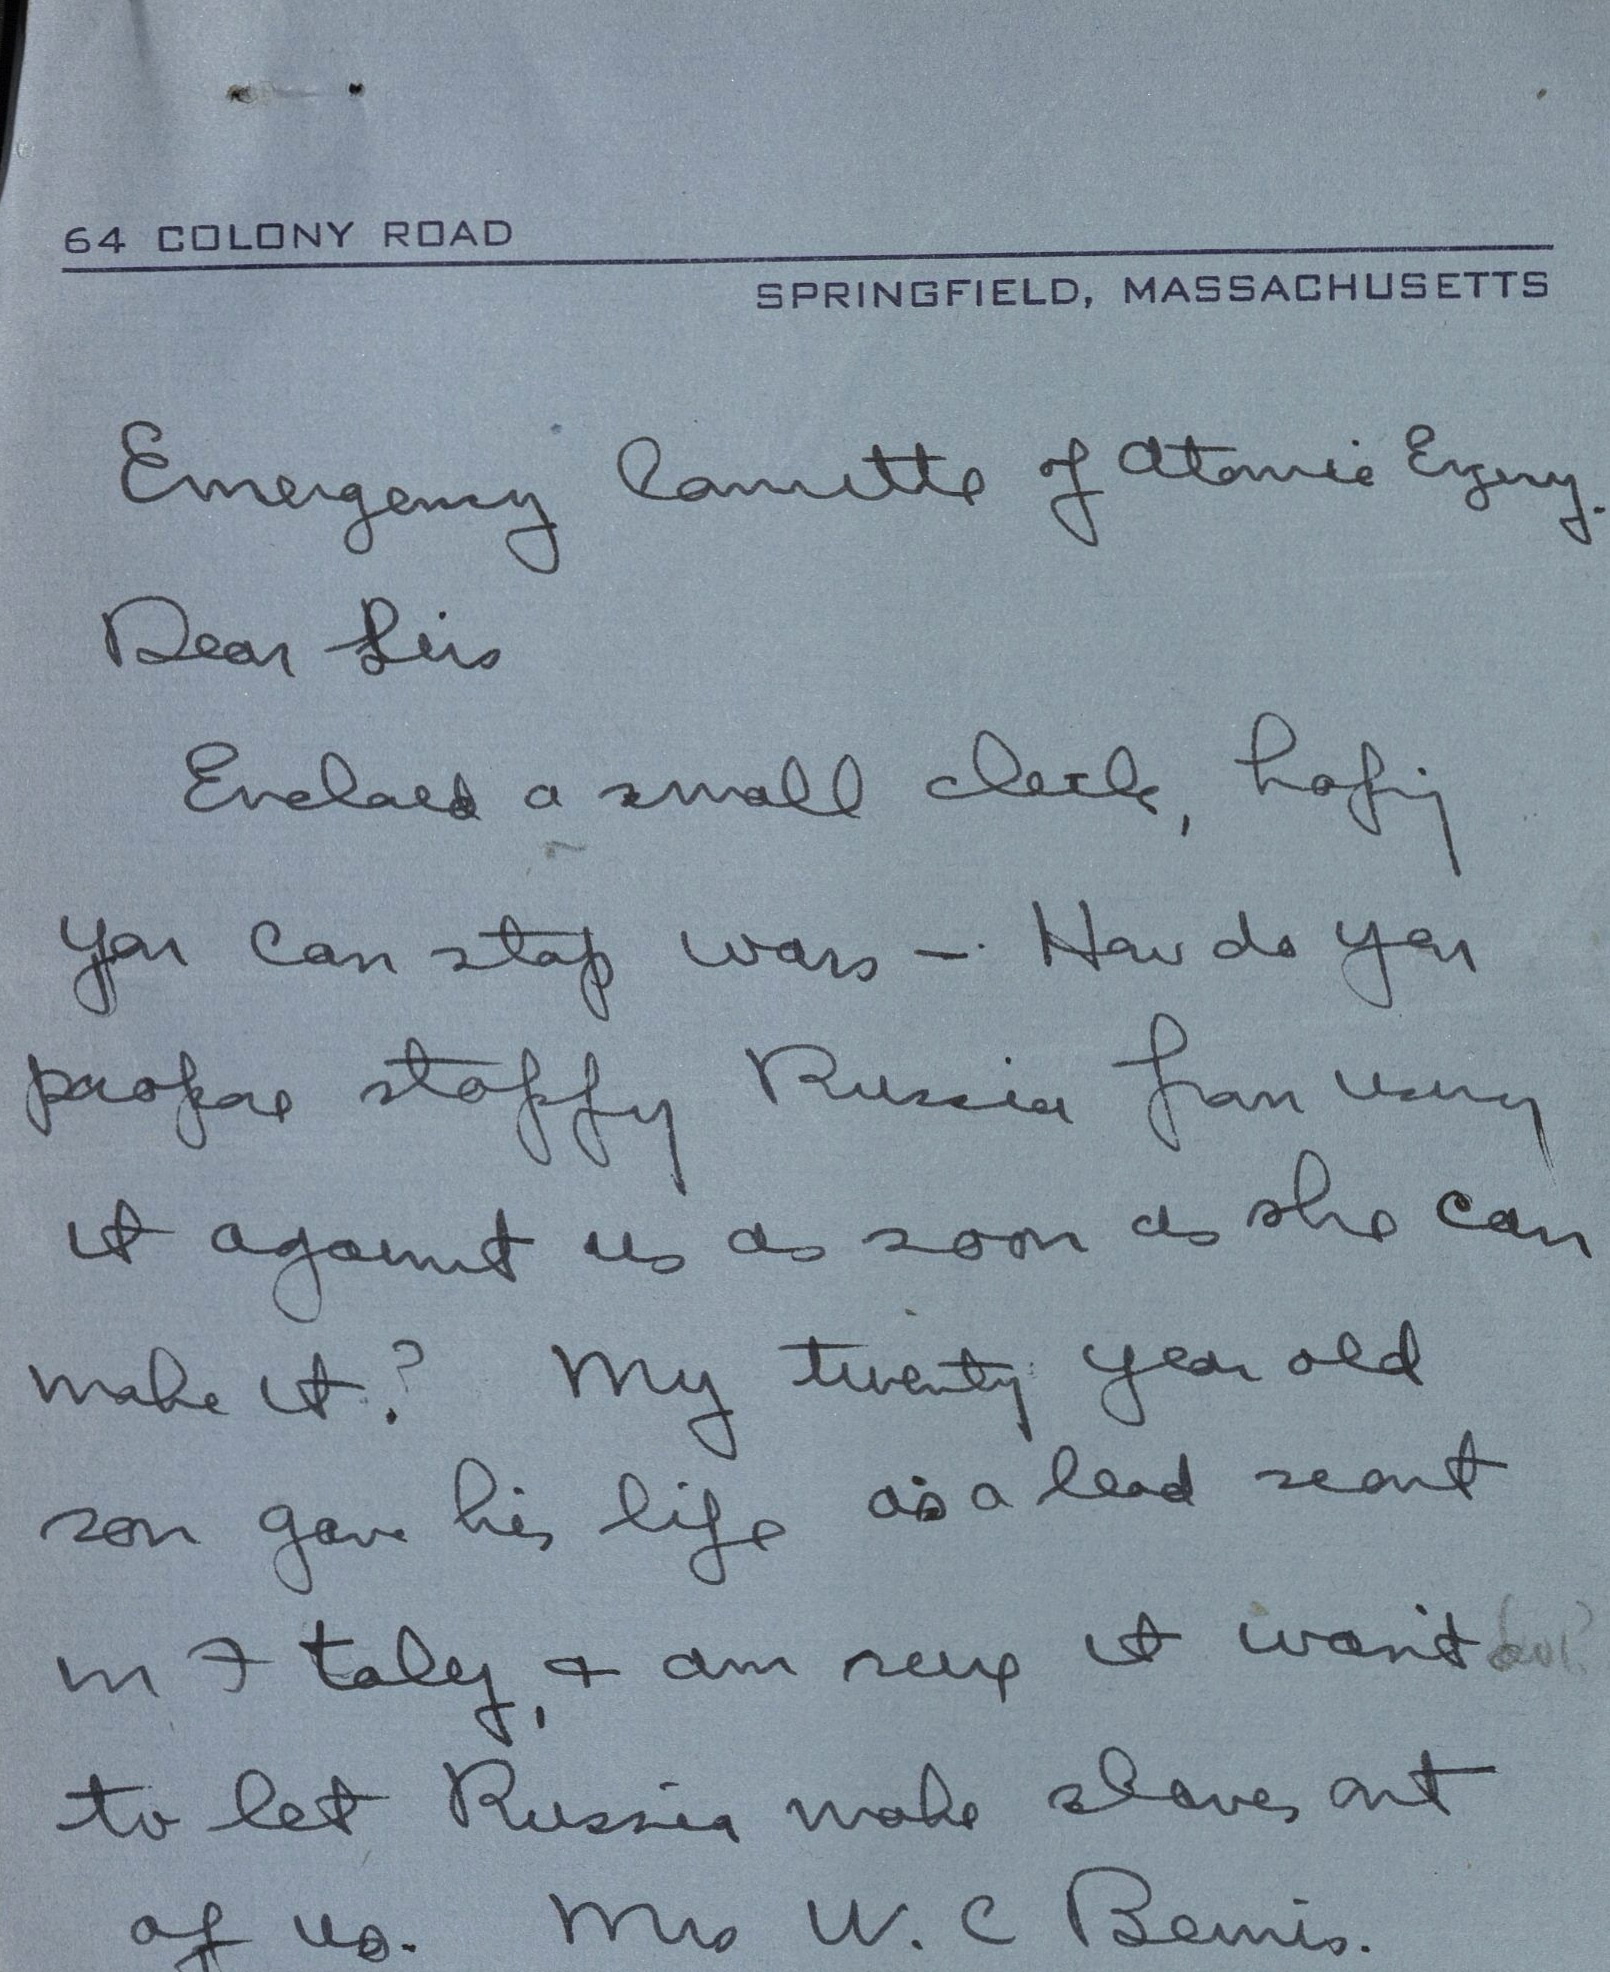 64 COLONY ROAD
SPRINGFIELD, MASSACHUSETTS
Emergency Committe of Atomic Energy.
Dear Sirs
Enclosed a small check, hoping
you can stop wars — How do you
propose stopping Russia from using
it against us as soon as she can
make it? My twenty year old
son gave his life as a lead scout
in Italy, & am sure it wasn't
to let Russia make slaves out
of us. Mrs W. C Bemis.